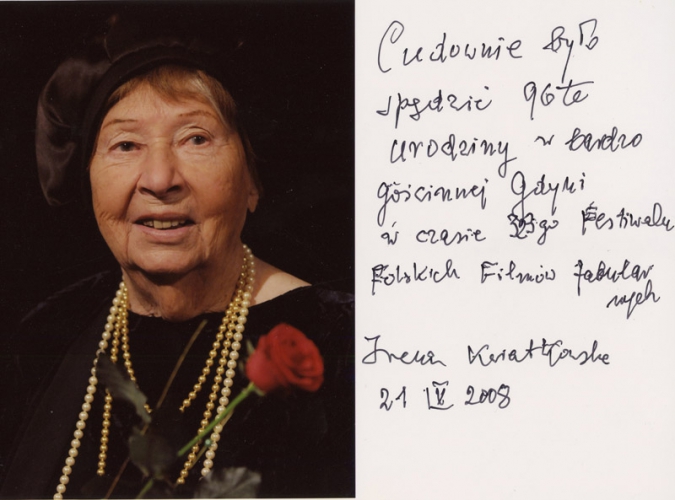 Cudownie było
spędzić 96te
urodziny w bardzo
gościnnej Gdyni
w czasie 33go Festiwalu
Polskich Filmów Fabular
nych
Irena Kwiatkowska
21 IX 2008